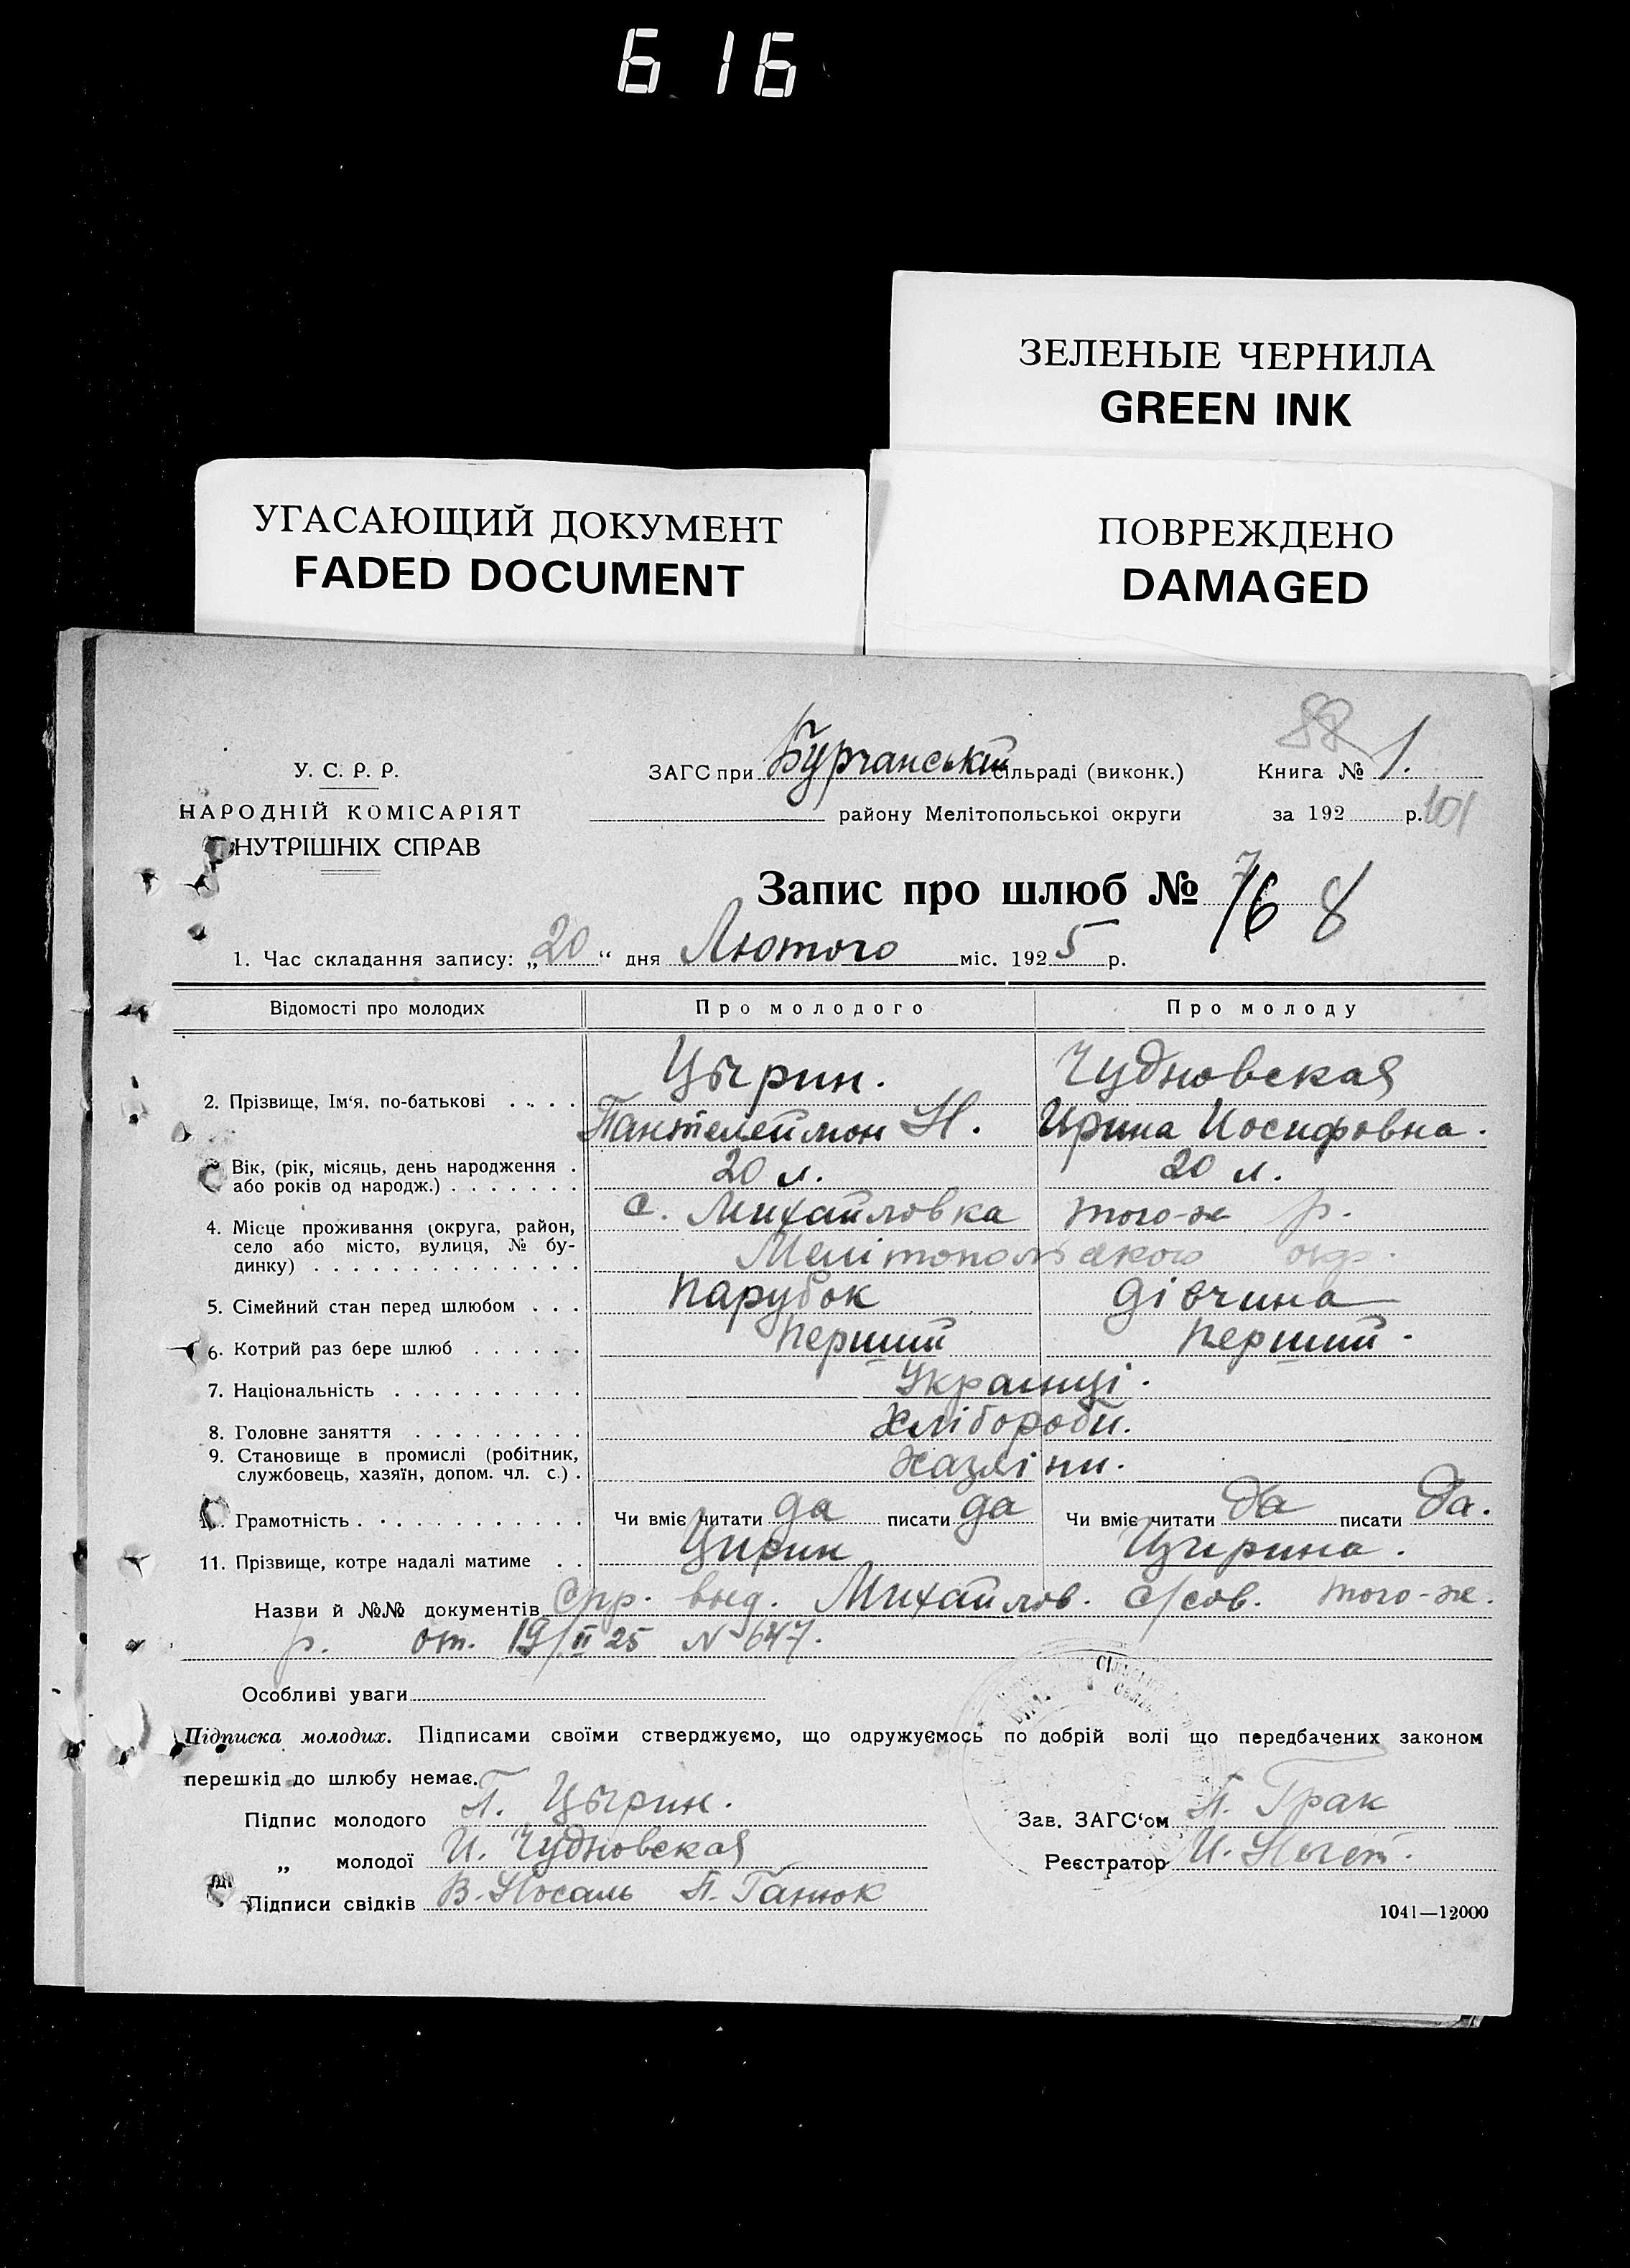 6 16
ЗЕЛЕНЫЕ ЧЕРНИЛА
GREEN INK
УГАСАЮЩИЙ ДОКУМЕНТ
FADED DOCUMENT
ПОВРЕЖДЕНО
DAMAGED
88
У. С. Р. Р.
НАРОДНІЙ КОМІСАРІЯТ
ВНУТРІШНІХ СПРАВ
ЗАГС при Бурчанській сільраді (виконк.)
району Мелітопольської округи
Книга № 1.
за 192 р. 101
Запис про шлюб № 7 16 8
1. Час складання запису: „20“ дня Лютого міс. 1925 р.
Відомості про молодих Про молодого Про молоду
Цырин. Чудновская
2. Прізвище, Ім'я, по-батькові . . . . Пантелеймон Н. Ирина Иосифовна.
Вік, (рік, місяць, день народження . 20 л. 20 л.
або років од народж.) . . . . . . .
4. Місце проживання (округа, район, с. Михайловка того-ж р.
село або місто, вулиця, № бу-
динку) . . . . . . . . . . . . . . Мелітопольського окр.
5. Сімейний стан перед шлюбом . . . парубок дівчина
6. Котрий раз бере шлюб . . . . . . перший перший.
7. Національність . . . . . . . . . . Українці.
8. Головне заняття . . . . . . . . . Хлібороби.
9. Становище в промислі (робітник,
службовець, хазяїн, допом. чл. с.) .
Грамотність . . . . . . . . . . . . Чи вміє читати да писати да Чи вміє читати да писати да.
11. Прізвище, котре надалі матиме . . Цирин Цырина.
Назви й №№ документів Спр. выд. Михайлов. с/сов. того-ж.
р. от. 19/II 25 N 647.
Особливі уваги
Підписка молодих. Підписами своїми стверджуємо, що одружуємось по добрій волі що передбачених законом
перешкід до шлюбу немає.
Підпис молодого П. Цырин.
„ молодої И. Чудновская
Підписи свідків В. Носаль П. Ганюк
Зав. ЗАГС'ом П. Грак
Реєстратор И.
1041—12000